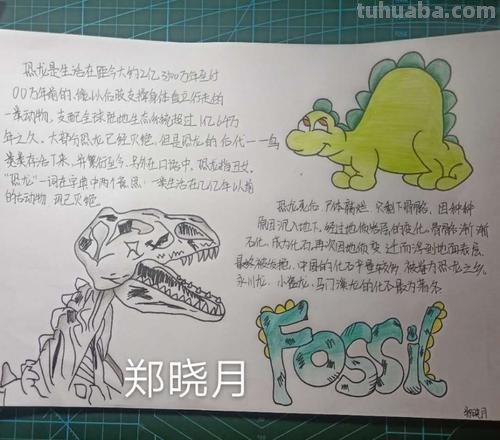 tuhuaba.com
恐龙是生活在距今大约2亿3500万年至6
500万年前的,能以后肢支撑身体直立行走的
一类动物,支配全球陆地生态系统超过1亿6千万
年之久。大部分恐龙已经灭绝,但是恐龙的后代——鸟
类存活下来,并繁衍至今
"恐龙"一词在字典中两个意思:一类生活在几亿年以前
的古动物 现已灭绝
恐龙死后,尸体腐烂,只剩下骨骼,因种种
原因沉入地下,经过地质岩层的变化,骨骼渐渐
石化,成为化石,再次因地质变迁而浮到地面表层,
最终被发掘,中国的化石
永川龙、小盗龙、马门溪龙的化石最为著名
Fossil
郑晓月
郑晓月